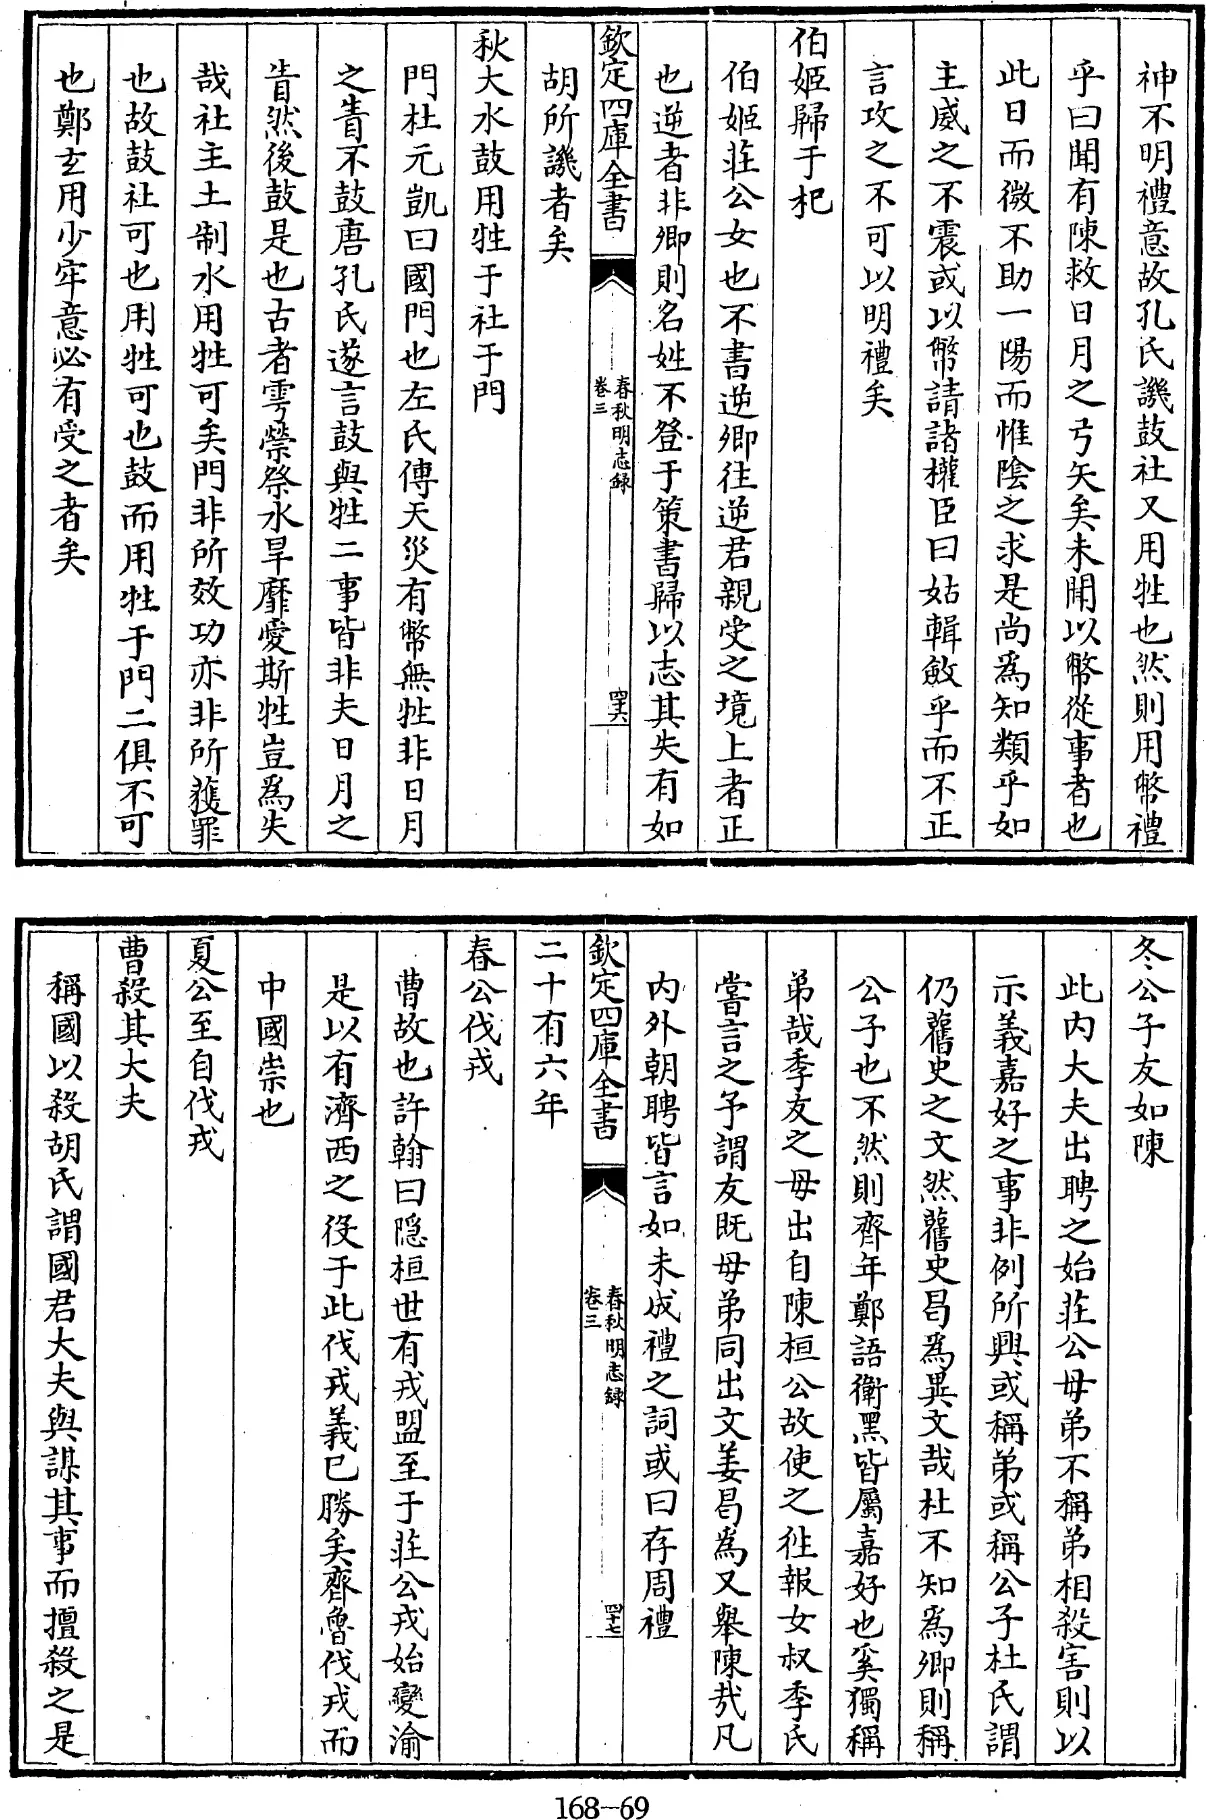 神不明禮意故孔氏譏鼓社又用牲也然則用幣禮
乎曰聞有陳救日月之弓矢矣未聞以幣從事者也
此日而微不助一陽而惟陰之求是尚為知類乎如
主威之不震或以幣請諸權臣曰姑輯斂乎而不正
言攻之不可以明禮矣
伯姬歸于杞
伯姬莊公女也不書逆卿往逆君親受之境上者正
也逆者非卿則名姓不登于策書歸以志其失有如
欽定四庫全書
春秋明志錄
卷三
四十六
胡所譏者矣
秋大水鼓用牲于社于門
門杜元凱曰國門也左氏傳天災有幣無牲非日月
之眚不鼓唐孔氏遂言鼓與牲二事皆非夫日月之
眚然後鼓是也古者雩禜祭水旱靡愛斯牲豈為失
哉社主土制水用牲可矣門非所效功亦非所獲罪
也故鼓社可也用牲可也鼓而用牲于門二俱不可
也鄭玄用少牢意必有受之者矣
冬公子友如陳
此內大夫出聘之始莊公母弟不稱弟相殺害則以
示義嘉好之事非例所興或稱弟或稱公子杜氏謂
仍舊史之文然舊史曷為異文哉杜不知為卿則稱
公子也不然則齊年鄭語衛黑皆屬嘉好也奚獨稱
弟哉季友之母出自陳桓公故使之徃報女叔季氏
嘗言之予謂友既母弟同出文姜曷為又舉陳哉凡
內外朝聘皆言如未成禮之詞或曰存周禮
欽定四庫全書
春秋明志錄
卷三
四十七
二十有六年
春公伐戎
曹故也許翰曰隱桓世有戎盟至于莊公戎始變渝
是以有濟西之役于此伐戎義已勝矣齊魯伐戎而
中國崇也
夏公至自伐戎
曹殺其大夫
稱國以殺胡氏謂國君大夫與謀其事而擅殺之是
168-69